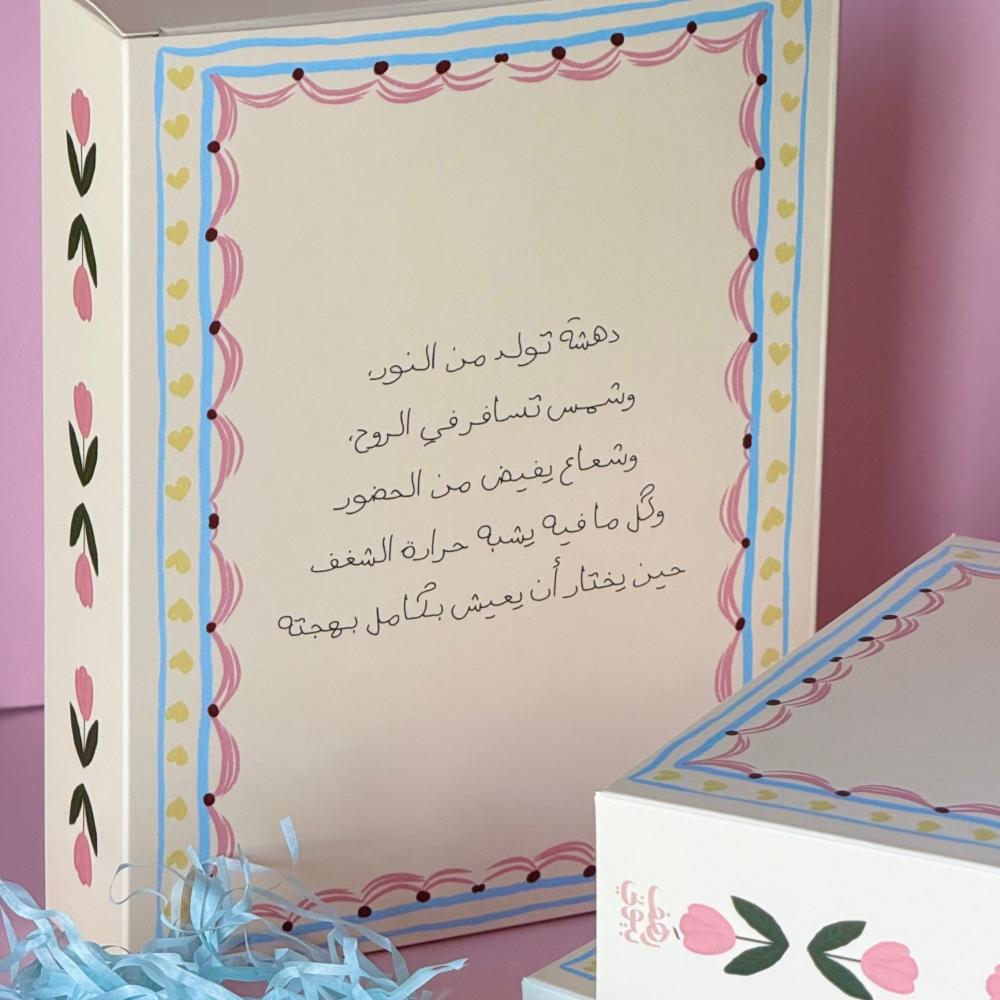 دهشة تولد من النور،
وشمس تسافر في الروح،
وشعاع يفيض من الحضور
وكُل ما فيه يشبه حرارة الشغف
حين يختار أن يعيش بكُامل بهجته